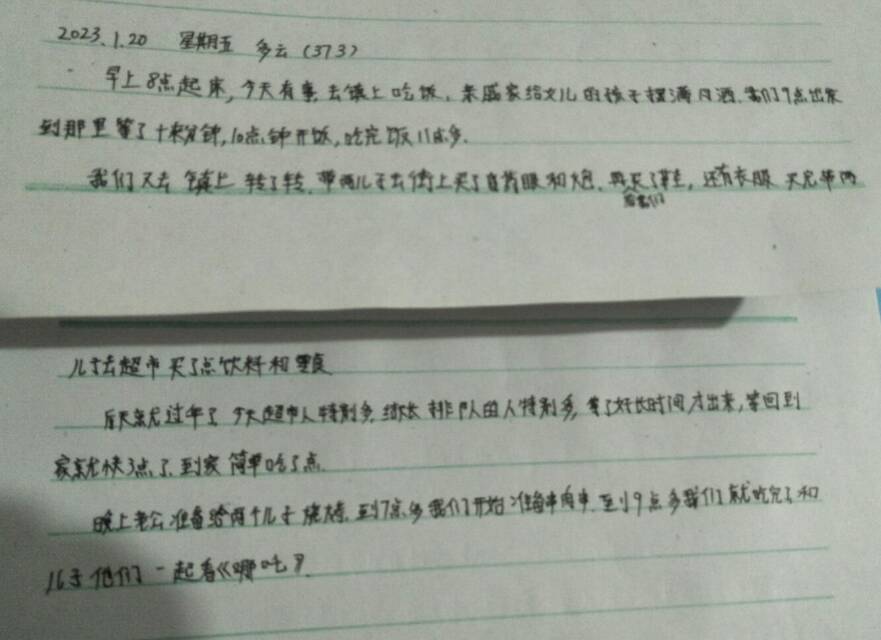 2023.1.20 星期五 多云(373)
早上8点起床,今天有事去镇上吃饭,亲戚家给女儿的孩子摆满月酒.我们9点出来
到那里等了十来分钟,10点钟开饭,吃完饭11点多.
我们又去镇上转了转.带两儿子去街上买了 和炮.再买了鞋,还有衣服 又带两
给我们
儿子去超市买了点饮料和零食
后天就过年了 今天超市人特别多 结长排队人的人特别多,等了好长时间才出来,等回到
家就快3点了.到家简单吃了点.
晚上老公准备给两个儿子烧烤.到7点多我们开始准备串肉串.到9点多我们就吃完了和
儿子他们一起看《哪吒》.